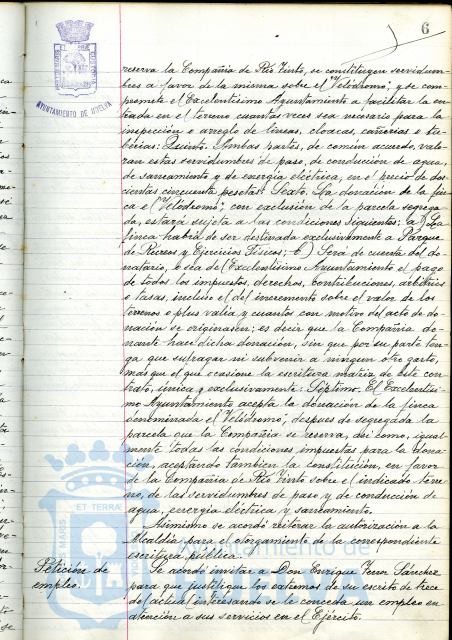 6
AYUNTAMIENTO DE HUELVA
reserva la Compañía de Río Tinto, se constituyen servidum-
bres a favor de la misma sobre el "Velódromo", y se com-
promete el Excelentísimo Ayuntamiento a facilitar la en-
trada en el terreno cuantas veces sea necesario para la
inspección o arreglo de líneas, cloacas, cañerías o tu-
berías: Quinto. Ambas partes, de común acuerdo, valo-
ran estas servidumbres de paso, de conducción de agua,
de saneamiento y de energía eléctrica, en el precio de dos-
cientas cincuenta pesetas: Sexto. La donación de la fin-
ca el "Velódromo", con exclusión de la parcela segrega-
da, estará sujeta a las condiciones siguientes: a) La
finca habrá de ser destinada exclusivamente a Parque
de Recreos y Ejercicios Físicos; b) Será de cuenta del do-
natario, o sea del Excelentísimo Ayuntamiento el pago
de todos los impuestos, derechos, contribuciones, arbitrios
o tasas, incluso el del incremento sobre el valor de los
terrenos o plus valía y cuantos con motivo del acto de do-
nación se originasen; es decir que la Compañía do-
nante hace dicha donación, sin que por su parte ten-
ga que sufragar ni subvenir a ningun otro gasto,
mas que el que ocasione la escritura matriz de este con-
trato, única y exclusivamente: Séptimo. El Excelentísi-
mo Ayuntamiento acepta la donación de la finca
denominada el "Velódromo", despues de segregada la
parcela que la Compañía se reserva, asi como, igual-
mente todas las condiciones impuestas para la dona-
ción, aceptando tambien la constitución, en favor
de la Compañía de Río Tinto sobre el indicado terre-
no, de las servidumbres de paso y de conducción de
agua, energía eléctrica y saneamiento.
Asimismo se acordó reiterar la autorización a la
Alcaldía para el otorgamiento de la correspondiente
escritura pública.
Petición de
empleo.
Se acordó invitar a Don Enrique Sánchez
para que justifique los extremos de su escrito de trece
de (actual) interesando se le conceda un empleo en
atención a sus servicios en el Ejército.
ET TERRA